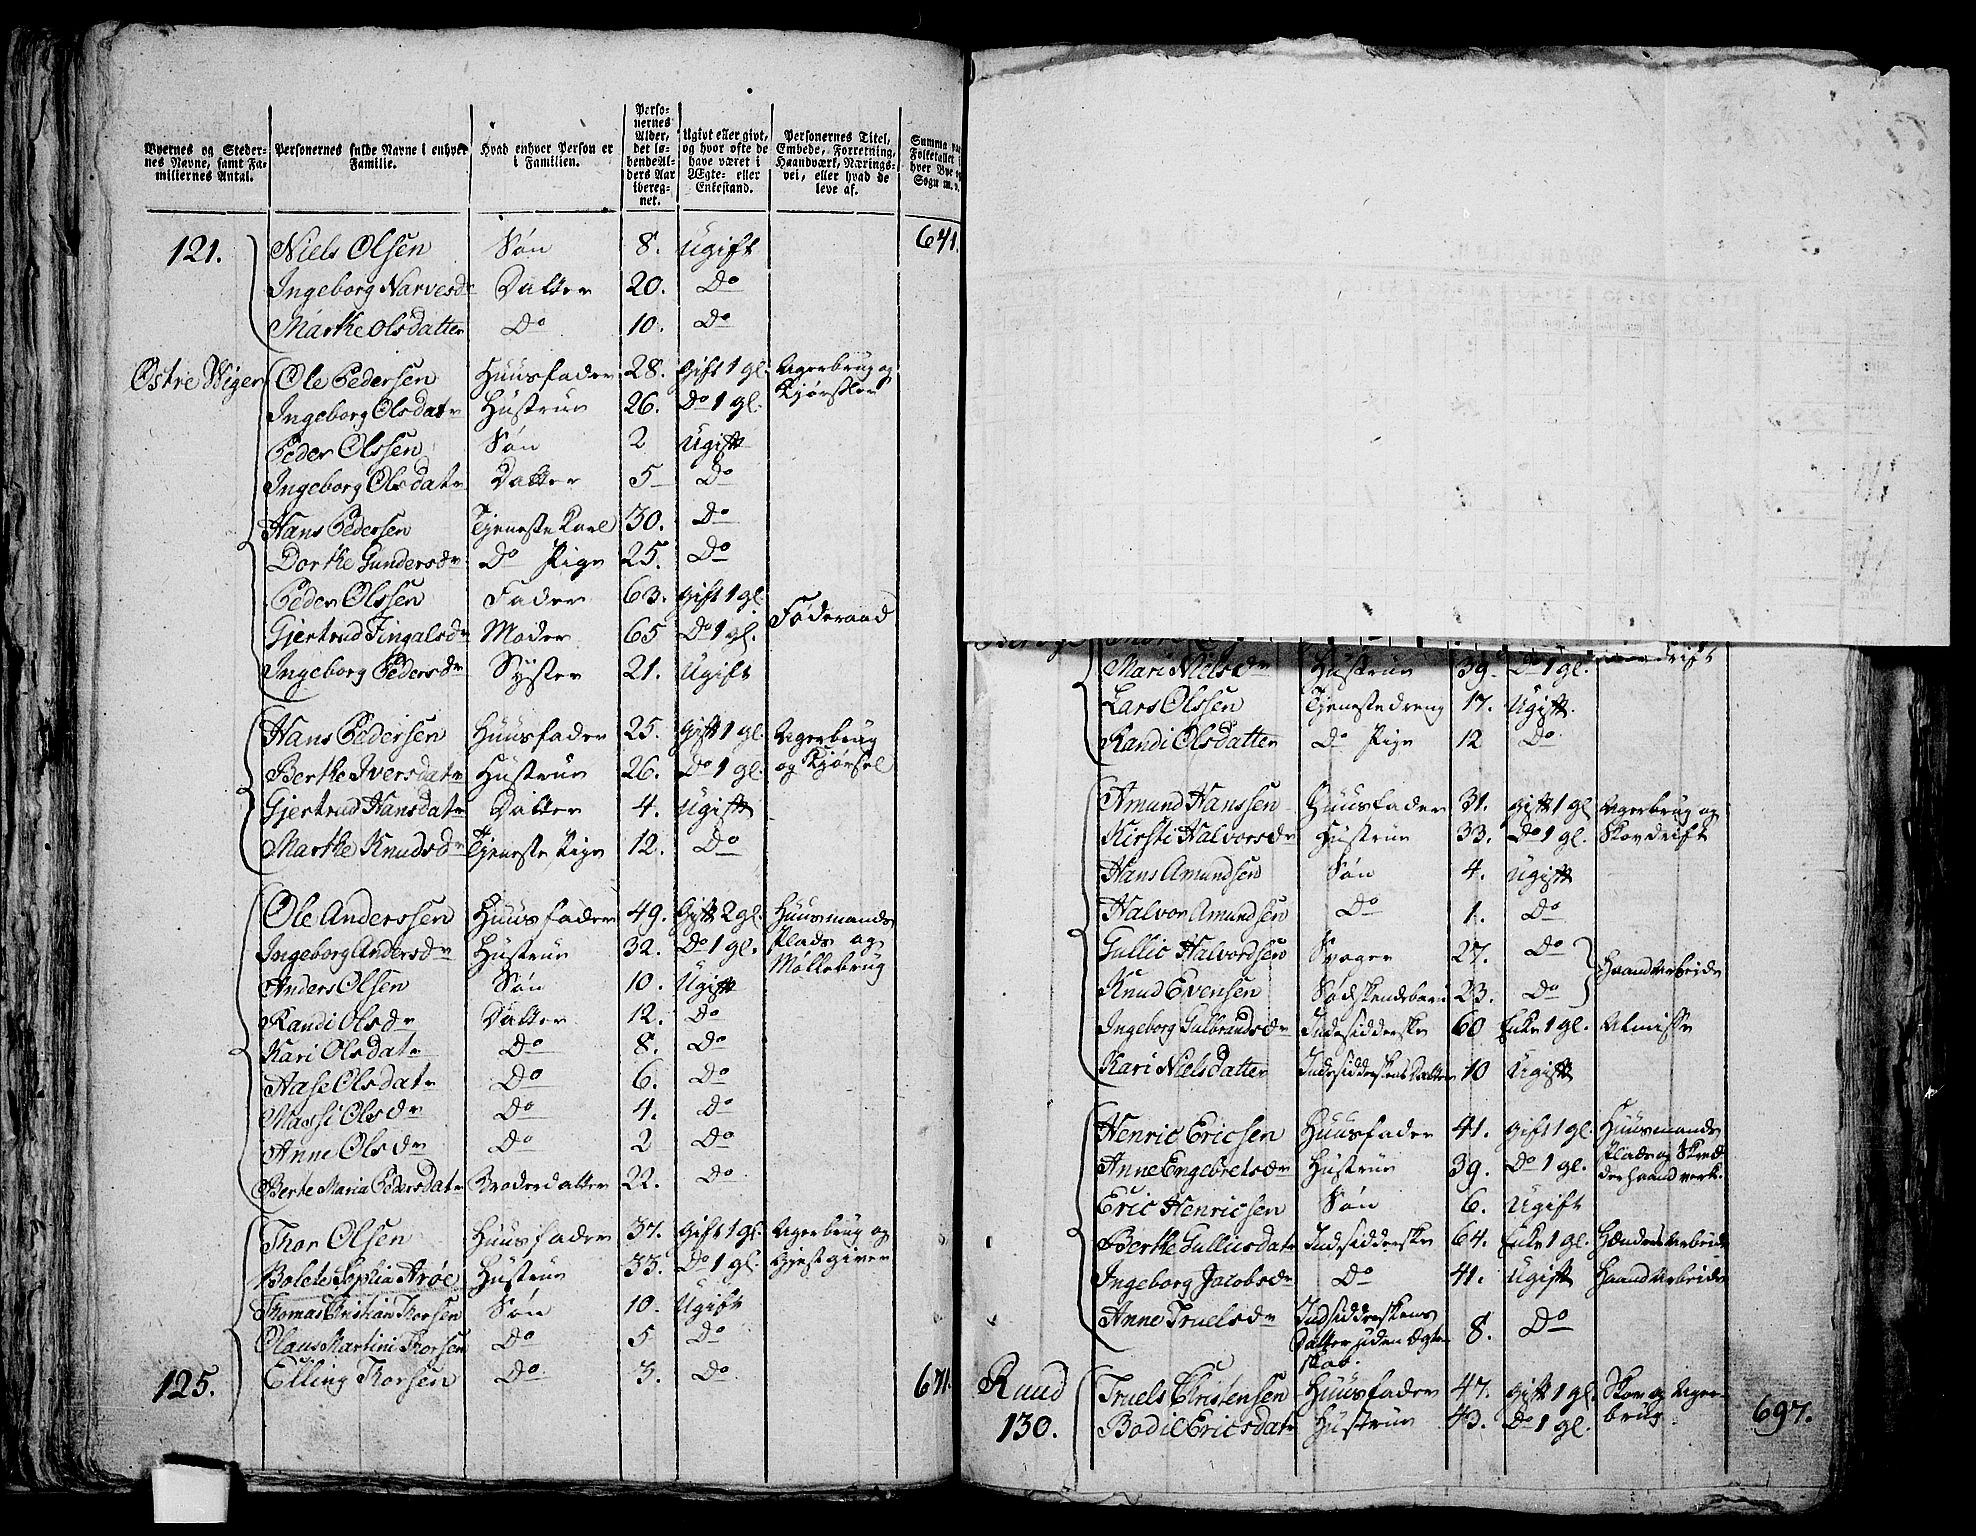 Byernes og Stedernes Navne, samt Familiernes Antal. | Personernes fulde Navne i enhver Familie. | Hvad enhver Person er i Familien. | Personernes Alder, det løbende Alders Aar iberegnet. | Ugivt eller givt, og hvor ofte de have været i Ægte- eller Enkestand. | Personernes Titel, Embede, Forretning, Haandværk, Næringsvei, eller hvad de leve af. | Summa paa Folketallet i hver Bye og Sogn m. v.
121. Niels Olsen Søn 8. Ugift 641.
Ingeborg Narvesdr Datter 20. Do
Marthe Olsdatter Do 10. Do
Østre Wiger Ole Pedersen Huusfader 28. Gift 1 gl. Agerbrug og
Ingeborg Olsdatr Hustrue 26. Do 1 gl. Kjørsler
Peder Olssen Søn 2 Ugift
Ingeborg Olsdatr Datter 5 Do
Hans Pedersen Tjeneste Karl 30. Do
Dorthe Gundersdr Do Pige 25. Do
Peder Olssen Fader 63. Gift 1 gl.
Gjertrud Fingalsdr Moder 65 Do 1 gl. Føderaad
Ingeborg Pedersdr Syster 21. Ugift
Hans Pedersen Huusfader 25. Gift 1 gl. Agerbrug
Berthe Iversdatr Hustrue 26. Do 1 gl. og Kjørsel
Gjertrud Hansdatr Datter 4. Ugift
Marthe Knudsdr Tjeneste Pige 12. Do
Ole Anderssen Huusfader 49. Gift 2 gl. Huusmands
Ingeborg Andersdr Hustrue 32. Do 1 gl. Plads og
Anders Olsen Søn 10. Ugift Møllebrug
Randi Olsdr Datter 12. Do
Kari Olsdatr Do 8. Do
Aase Olsdatr Do 6. Do
Massi Olsdr Do 4. Do
Anne Olsdr Do 2 Do
Berte Maria Pedersdatr Broderdatter 22. Do
Thor Olsen Huusfader 37. Gift 1 gl. Agerbrug og
Bolete Sophia Arøe Hustrue 33. Do 1 gl. Gjestgiver
Thomas Christian Thorsen Søn 10. Ugift
Olaus Martini Thorsen Do 5 Do
125. Elling Thorsen Do 3. Do 671.
Mari Nielsdr Hustrue 39. Do 1 gl.
Lars Olssen Tjenestedreng 17. Ugift
Randi Olsdatter Do Pige 12 Do
Amund Hanssen Huusfader 31. Gift 1 gl Agerbrug og
Kirsti Halvorsdr Hustrue 33. Do 1 gl. Skovdrift
Hans Amundsen Søn 4. Ugift
Halvor Amundsen Do 1. Do
Gullic Halvordsen Svoger 27. Do
Knud Evensen Sødskendebarn 23. Do Haandarbeide
Ingeborg Gulbrandsdr Indsidderske 60 Enke 1 gl. Almisse
Kari Nielsdatter Indsidderskens Datter 10 Ugift
Henric Ericsen Huusfader 41. Gift 1 gl. Huusmands
Anne Engebretsdr Hustrue 39. Do 1 gl. Plads og Skræd
Eric Henricsen Søn 6. Ugift derhaandverk.
Berthe Gullicsdatr Indsidderske 64. Enke 1 gl. Hænders Arbeide
Ingeborg Jacobsdr Do 41. Ugift Haandarbeide
Anne Truelsdr Indsidderskens
Datter uden Ægte 8. Do
skab.
Ruud Truels Christensen Huusfader 47. Gift 1 gl Skov og Ager-
130. Bodil Ericsdatr Hustrue 43. Do 1 gl. brug. 697.